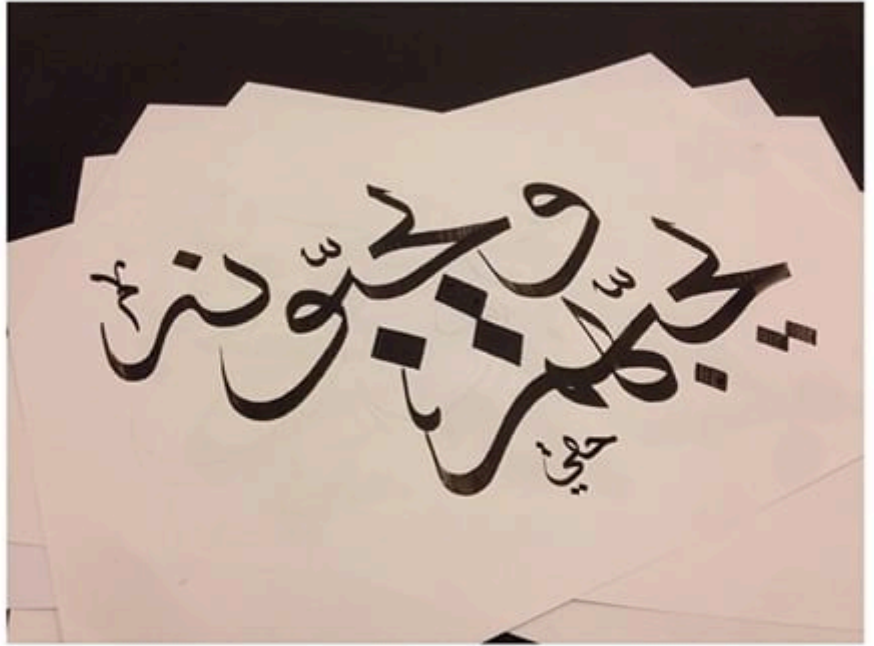 يحبّهم ويحبّونه
حقي